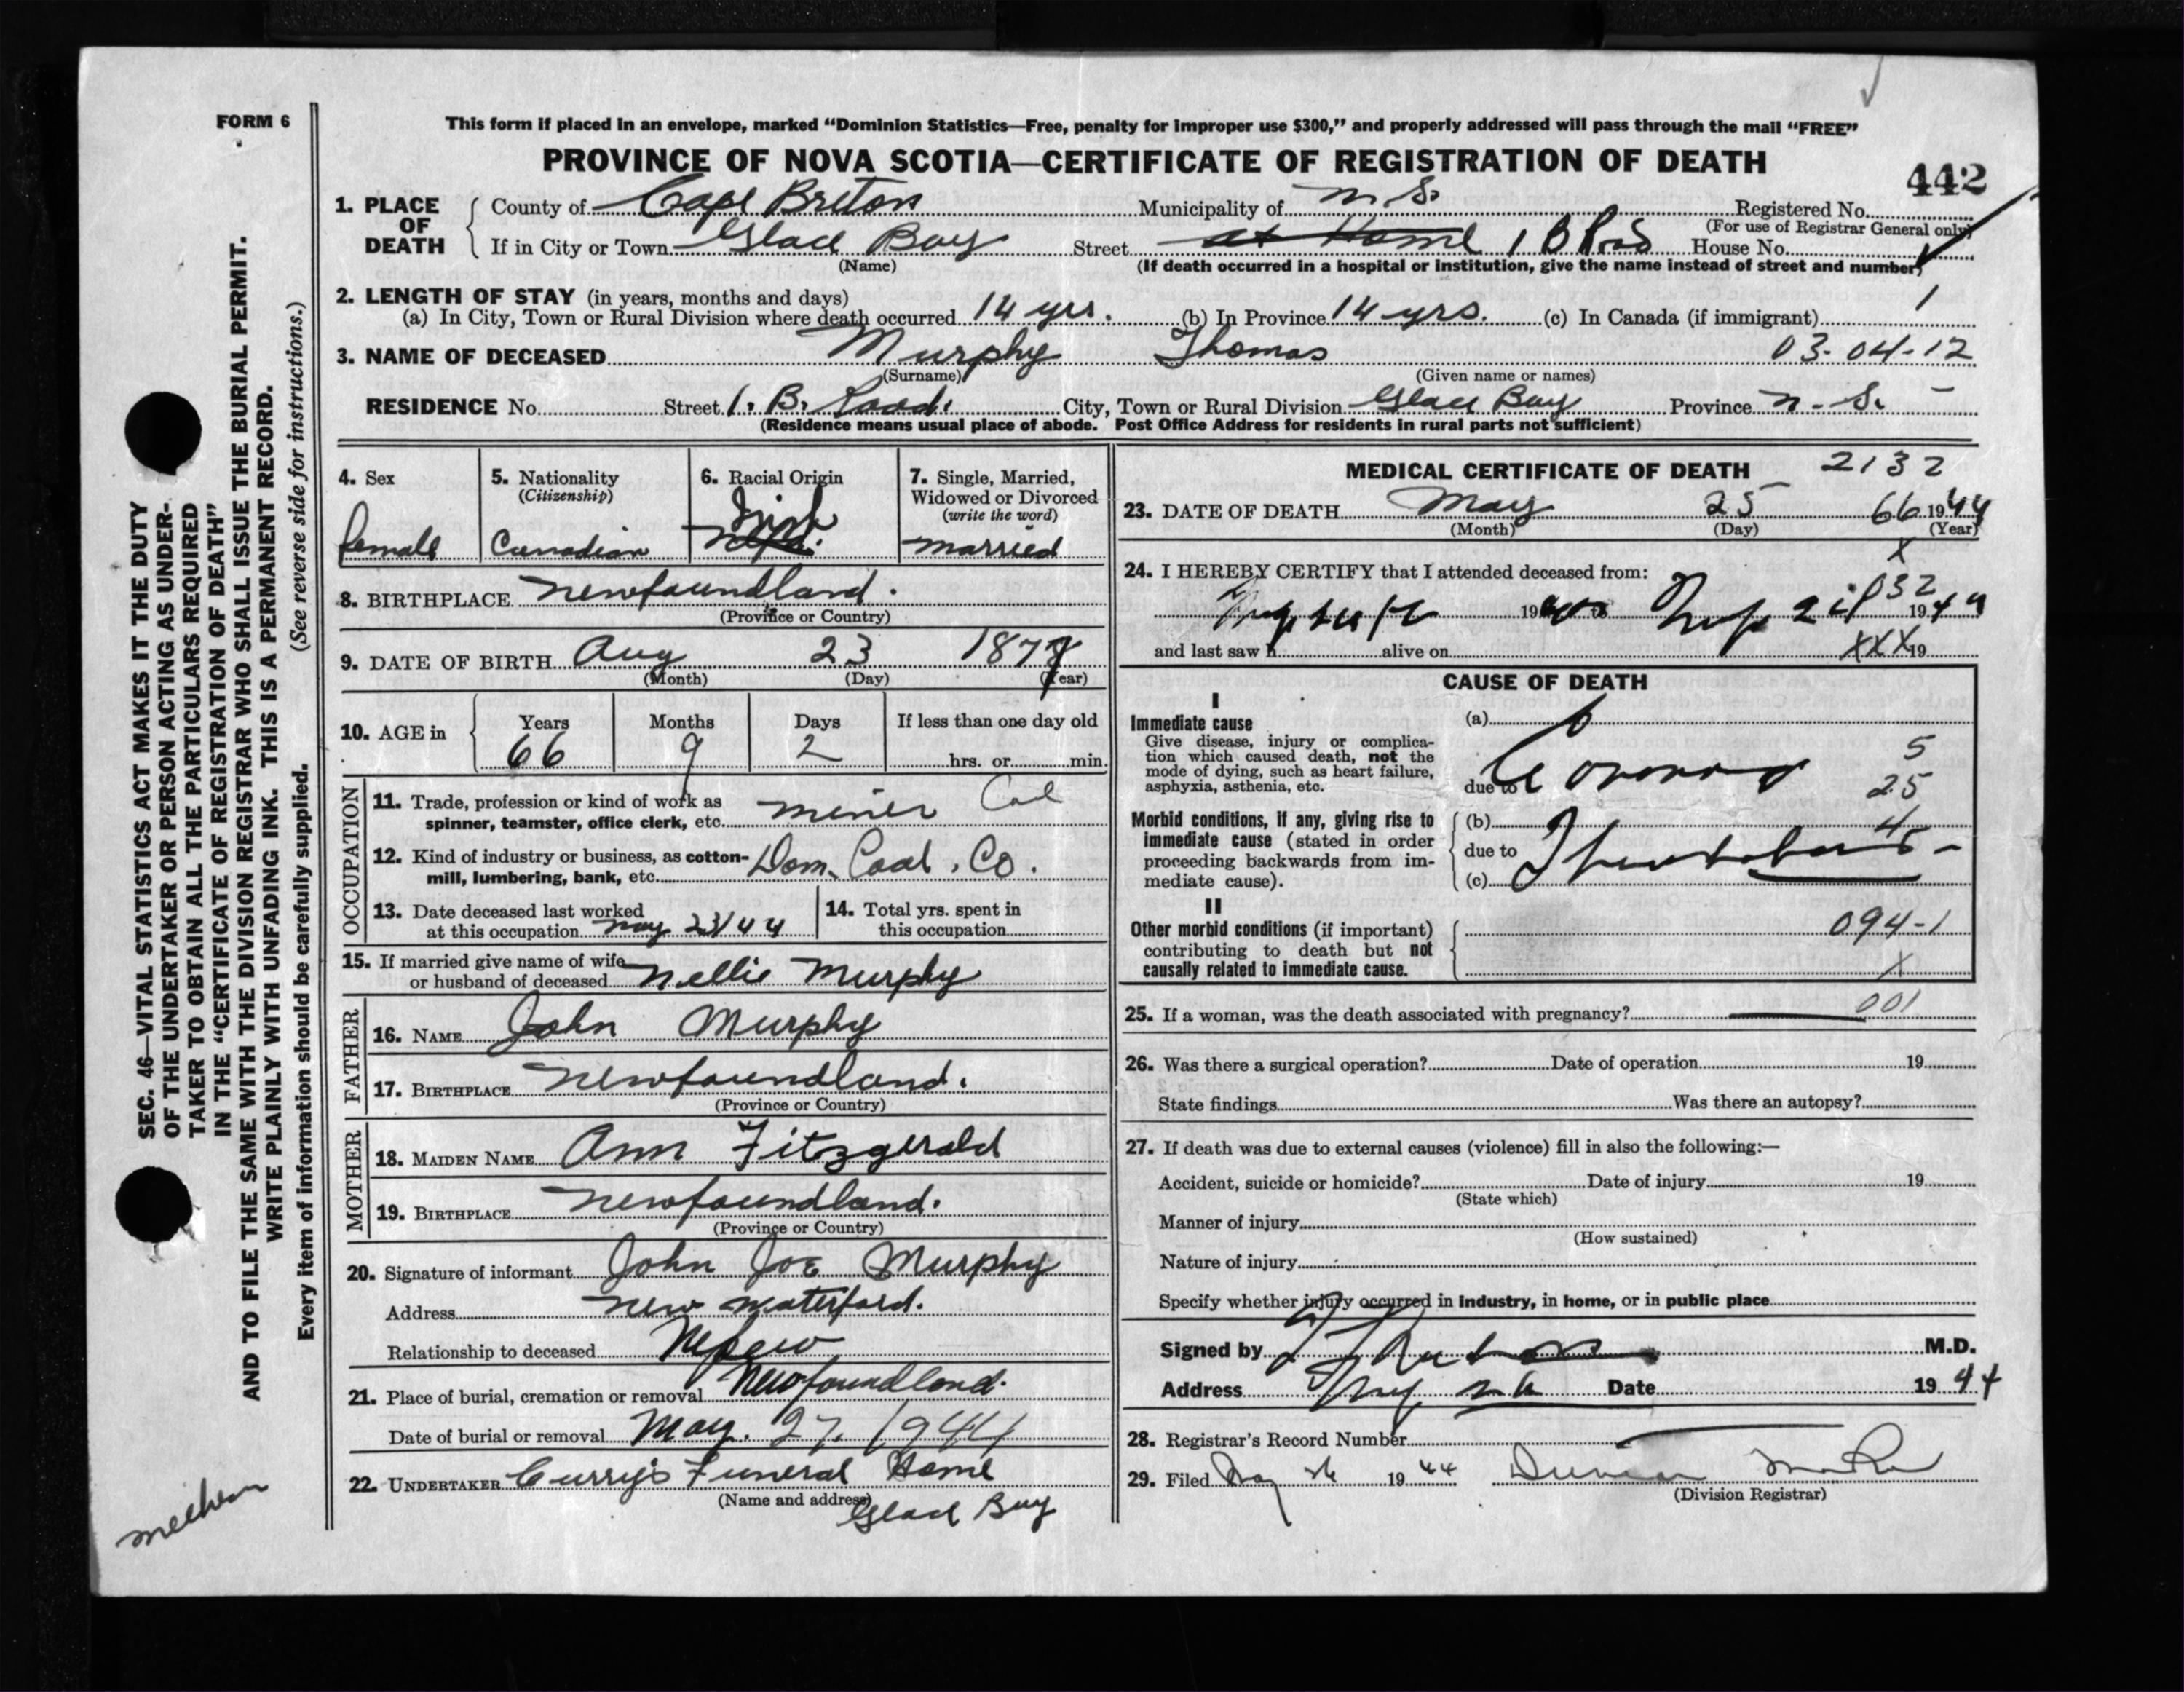 FORM 6
This form if placed in an envelope, marked “Dominion Statistics—Free, penalty for improper use $300,” and properly addressed will pass through the mail “FREE”
PROVINCE OF NOVA SCOTIA—CERTIFICATE OF REGISTRATION OF DEATH
442
1. PLACE OF DEATH
County of Cape Breton Municipality of N. S. Registered No.
(For use of Registrar General only)
If in City or Town Glace Bay Street at Home 1 B Road House No.
(Name) (If death occurred in a hospital or institution, give the name instead of street and number)
2. LENGTH OF STAY (in years, months and days) 1
(a) In City, Town or Rural Division where death occurred 14 yrs. (b) In Province 14 yrs. (c) In Canada (if immigrant)
3. NAME OF DECEASED Murphy Thomas 03-04-12
(Surname) (Given name or names)
RESIDENCE No. Street 1. B. Road. City, Town or Rural Division Glace Bay Province N. S.
(Residence means usual place of abode. Post Office Address for residents in rural parts not sufficient)
4. Sex
female
5. Nationality
(Citizenship)
Canadian
6. Racial Origin
Irish
Nfld.
7. Single, Married,
Widowed or Divorced
(write the word)
married
8. BIRTHPLACE Newfoundland.
(Province or Country)
9. DATE OF BIRTH Aug 23 1877
(Month) (Day) (Year)
10. AGE in
Years Months Days If less than one day old
66 9 2 hrs. or min.
OCCUPATION
11. Trade, profession or kind of work as
spinner, teamster, office clerk, etc. miner Coal
12. Kind of industry or business, as cotton-
mill, lumbering, bank, etc. Dom. Coal. Co.
13. Date deceased last worked
at this occupation May 23/44
14. Total yrs. spent in
this occupation
15. If married give name of wife
or husband of deceased Nellie Murphy
FATHER
16. NAME John Murphy
17. BIRTHPLACE Newfoundland.
(Province or Country)
MOTHER
18. MAIDEN NAME Ann Fitzgerald
19. BIRTHPLACE Newfoundland.
(Province or Country)
20. Signature of informant John Joe Murphy
Address New Waterford.
Relationship to deceased Nepew
21. Place of burial, cremation or removal Newfoundland.
Date of burial or removal May. 27. 1944
22. UNDERTAKER Curry's Funeral Home
(Name and address)
Glace Bay
MEDICAL CERTIFICATE OF DEATH 2132
23. DATE OF DEATH May 25 66 1944
(Month) (Day) (Year)
X
24. I HEREBY CERTIFY that I attended deceased from:
19 to 032 1944
and last saw h alive on XXX 19
CAUSE OF DEATH
I
Immediate cause
Give disease, injury or complica-
tion which caused death, not the
mode of dying, such as heart failure,
asphyxia, asthenia, etc.
(a)
due to Coronary
5
25
4
Morbid conditions, if any, giving rise to
immediate cause (stated in order
proceeding backwards from im-
mediate cause).
(b)
due to Thrombosis
(c)
II
Other morbid conditions (if important)
contributing to death but not
causally related to immediate cause.
094-1
X
25. If a woman, was the death associated with pregnancy? 001
26. Was there a surgical operation? Date of operation 19
State findings Was there an autopsy?
27. If death was due to external causes (violence) fill in also the following:—
Accident, suicide or homicide? Date of injury 19
(State which)
Manner of injury
(How sustained)
Nature of injury
Specify whether injury occurred in industry, in home, or in public place
Signed by M.D.
Address Date 1944
28. Registrar's Record Number
29. Filed May 26 1944 Duncan
(Division Registrar)
SEC. 46—VITAL STATISTICS ACT MAKES IT THE DUTY
OF THE UNDERTAKER OR PERSON ACTING AS UNDER-
TAKER TO OBTAIN ALL THE PARTICULARS REQUIRED
IN THE “CERTIFICATE OF REGISTRATION OF DEATH”
AND TO FILE THE SAME WITH THE DIVISION REGISTRAR WHO SHALL ISSUE THE BURIAL PERMIT.
WRITE PLAINLY WITH UNFADING INK. THIS IS A PERMANENT RECORD.
(See reverse side for instructions.)
Every item of information should be carefully supplied.